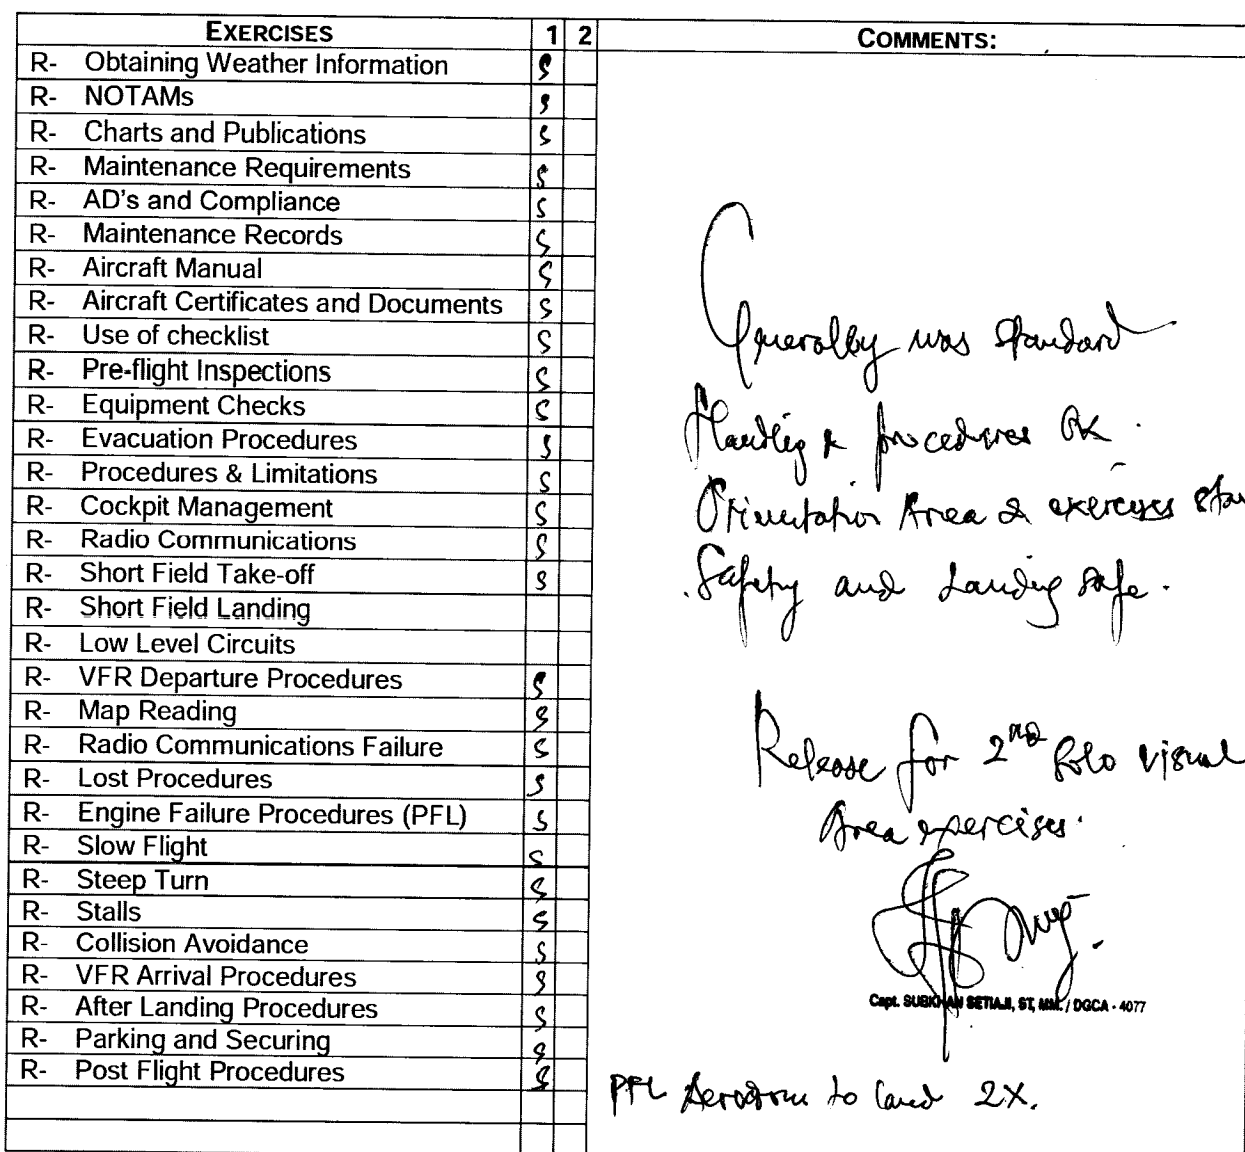 EXERCISES 1 2 COMMENTS:
R- Obtaining Weather Information S
R- NOTAMs S
R- Charts and Publications S
R- Maintenance Requirements S
R- AD's and Compliance S
R- Maintenance Records S
R- Aircraft Manual S
R- Aircraft Certificates and Documents S
R- Use of checklist S
R- Pre-flight Inspections S
R- Equipment Checks S
R- Evacuation Procedures S
R- Procedures & Limitations S
R- Cockpit Management S
R- Radio Communications S
R- Short Field Take-off S
R- Short Field Landing
R- Low Level Circuits
R- VFR Departure Procedures S
R- Map Reading S
R- Radio Communications Failure S
R- Lost Procedures S
R- Engine Failure Procedures (PFL) S
R- Slow Flight S
R- Steep Turn S
R- Stalls S
R- Collision Avoidance S
R- VFR Arrival Procedures S
R- After Landing Procedures S
R- Parking and Securing S
R- Post Flight Procedures S
Generally was standard
Handlig & procedures OK.
Orientation Area & exercises stan
Safety and Landing safe.
Release for 2nd solo visual
Area exercises.
Capt. SUBKHAN SETIAJI, ST, MM. / DGCA - 4077
PFL Aerodrom to land 2X.